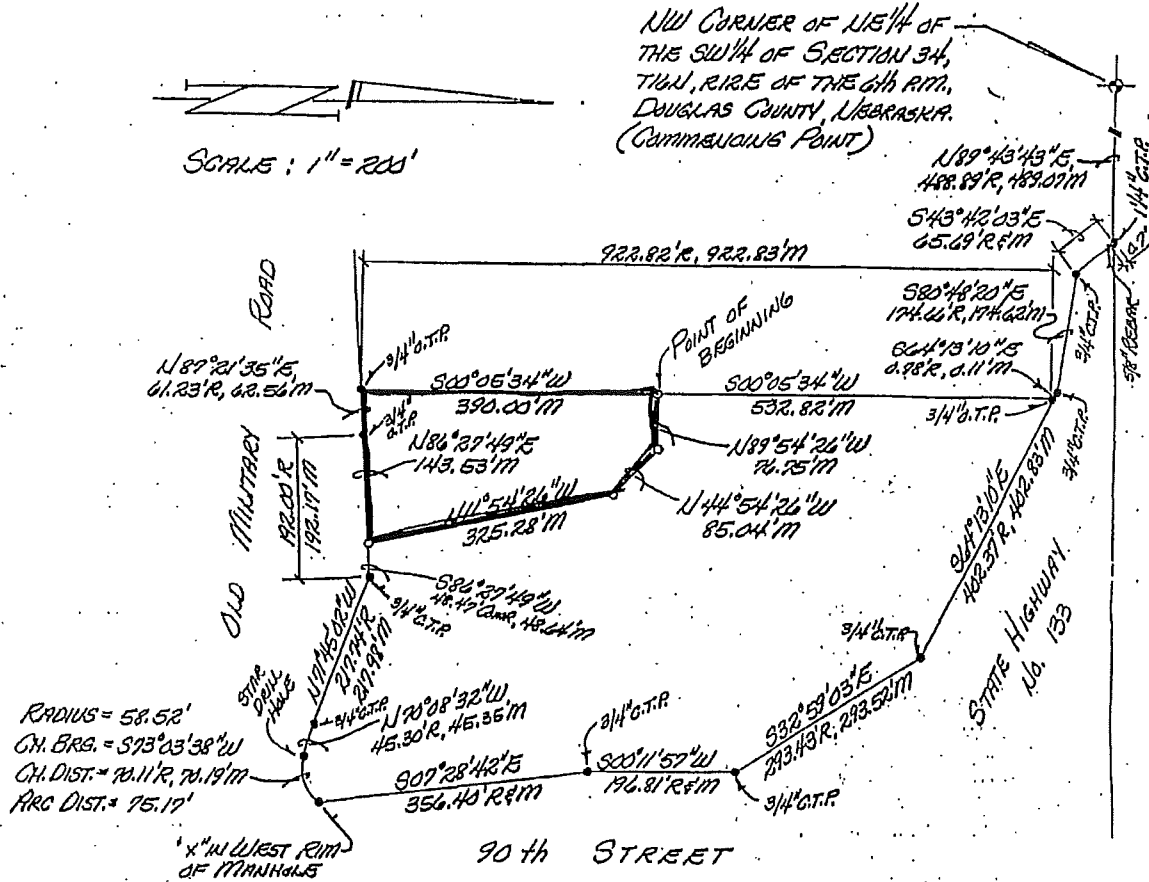 NW CORNER OF NE1/4 OF
THE SW1/4 OF SECTION 34,
T16N, R12E OF THE 6th P.M.
DOUGLAS COUNTY, NEBRASKA.
(COMMENCING POINT)
SCALE : 1" = 200'
N89°43'43"E,
488.89'R, 489.07'M
1 1/4" O.T.P.
S43°42'03"E
65.69'R&M
5/8" REBAR
922.82'R, 922.83'M
S80°48'20"E
174.66'R, 174.62'M
3/4" O.T.P.
S64°13'10"E
0.78'R, 0.11'M
3/4" O.T.P.
3/4" O.T.P.
POINT OF
BEGINNING
ROAD
3/4" O.T.P.
N87°21'35"E,
61.23'R, 62.56'M
S00°05'34"W
390.00'M
S00°05'34"W
532.82'M
3/4"
O.T.P.
N86°27'49"E
143.53'M
N89°54'26"W
76.75'M
N44°54'26"W
85.04'M
N11°54'26"W
325.28'M
OLD MILITARY
192.00'R
192.17'M
S86°27'49"W
48.47'COMP., 48.64'M
3/4" O.T.P.
S64°13'10"E
402.37'R, 402.83'M
STATE HIGHWAY
No. 133
3/4" O.T.P.
N71°45'02"W
217.74'R
217.98'M
STAR
DRILL
HOLE
3/4" O.T.P.
N70°08'32"W
45.30'R, 45.35'M
S32°59'03"E
293.43'R, 293.52'M
RADIUS = 58.52'
CH. BRG. = S73°03'38"W
CH. DIST. = 70.11'R, 70.19'M
ARC DIST. = 75.17'
3/4" O.T.P.
S07°28'42"E
356.40'R&M
S00°11'57"W
196.81'R&M
3/4" O.T.P.
"X" IN WEST RIM
OF MANHOLE
90th STREET